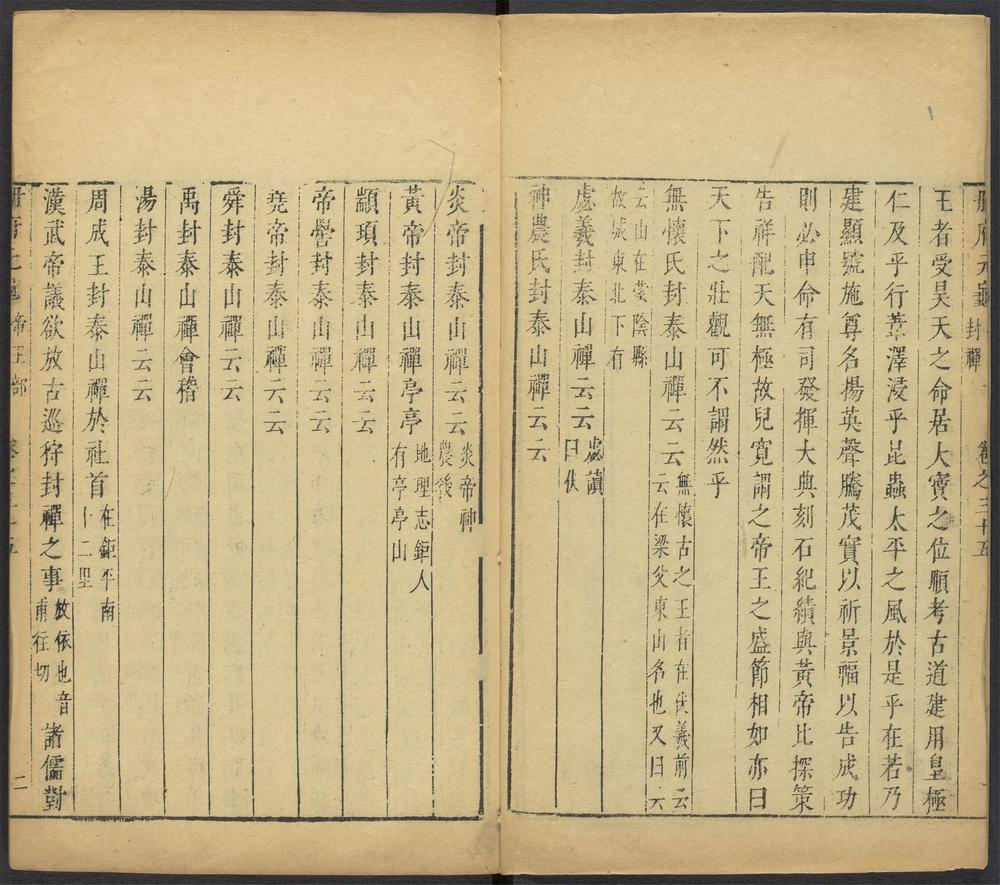 冊府元龜 封禪 卷之三十五
王者受昊天之命居大寶之位順考古道建用皇極
仁及乎行葦澤浸乎昆蟲太平之風於是乎在若乃
建顯號施尊名揚英聲騰茂實以祈景福以告成功
則必申命有司發揮大典刻石紀績與黃帝比探策
告祥配天無極故兒寬謂之帝王之盛節相如亦曰
天下之壯觀可不謂然乎
無懷氏封泰山禪云云無懷古之王者在伏羲前云
云在梁父東山名也又曰云
云山在蒙陰縣
故城東北下有
虙羲封泰山禪云云虙讀
曰伏
神農氏封泰山禪云云
炎帝封泰山禪云云炎帝神
農後
黃帝封泰山禪亭亭地理志鉅人
有亭亭山
顓頊封泰山禪云云
帝嚳封泰山禪云云
堯帝封泰山禪云云
舜封泰山禪云云
禹封泰山禪會稽
湯封泰山禪云云
周成王封泰山禪於社首在鉅平南
十二里
漢武帝議欲放古巡狩封禪之事放依也音
甫往切
諸儒對
冊府元龜 帝王部 卷之三十五 二